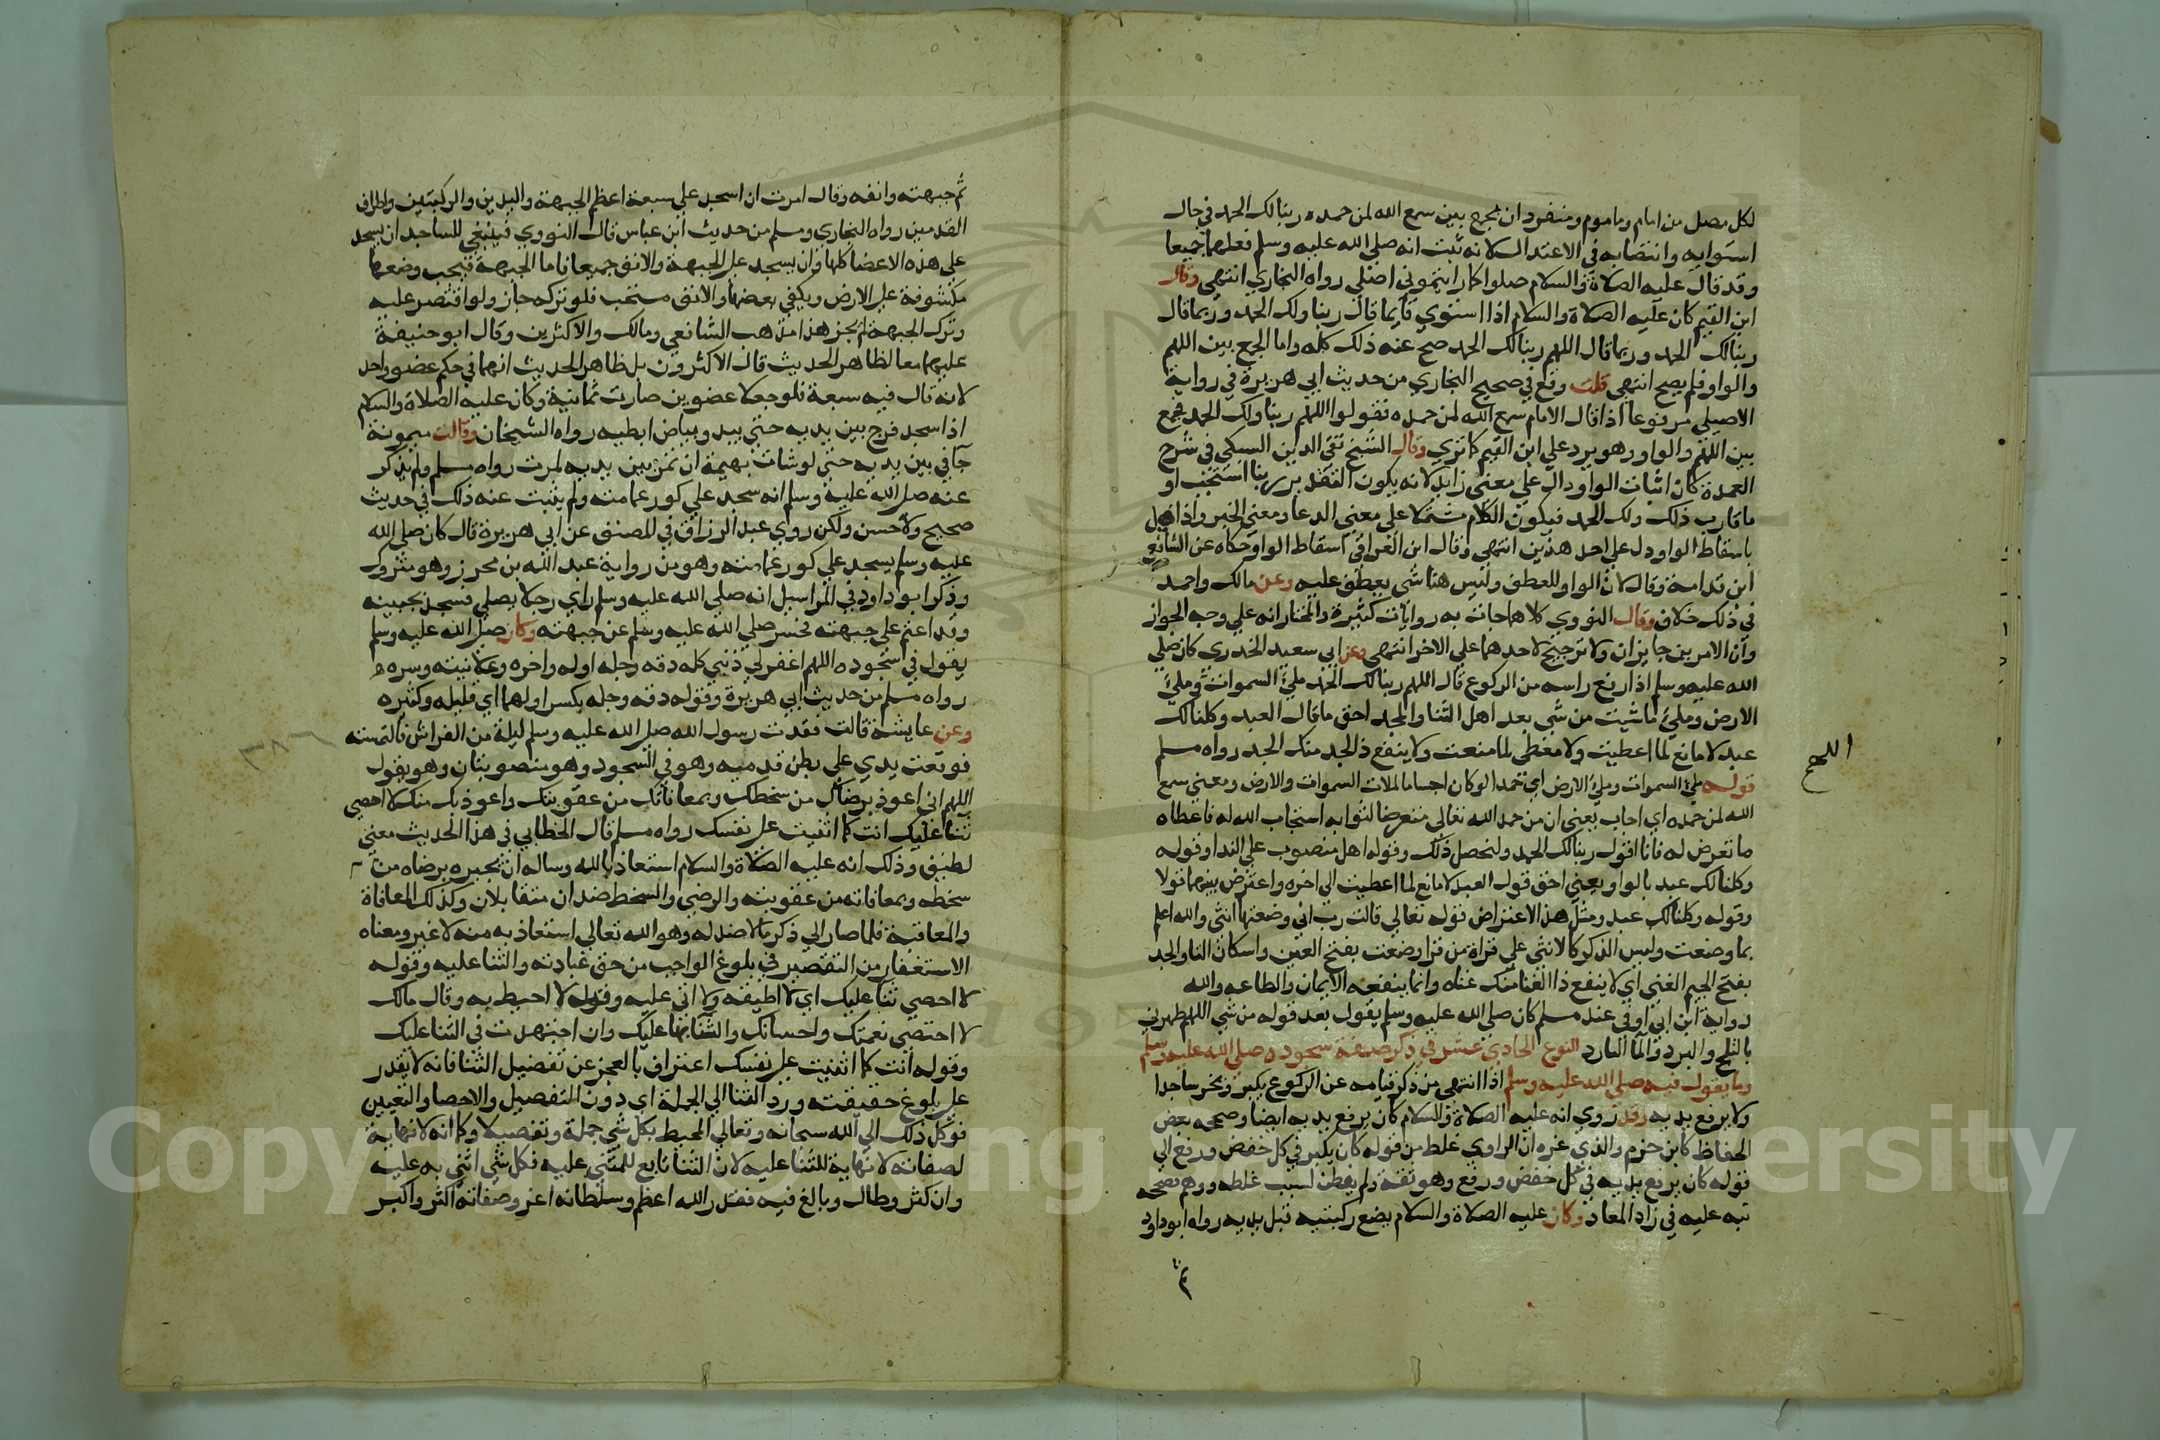 لكل مصل من امام وماموم ومنفرد ان يجمع بين سمع الله لمن حمده ربنا لك الحمد في حال
استوايه وانتصابه في الاعتدال لانه ثبت انه صلي الله عليه وسلم فعلهما جميعا
وقد قال عليه الصلاة والسلام صلوا كما رايتموني اصلي رواه البخاري انتهي وقال
ابن القيم كان عليه الصلاة والسلام اذا استوي قايما قال ربنا ولك الحمد وربما قال
ربنا لك الحمد وربما قال اللهم ربنا لك الحمد صح عنه ذلك كله واما الجمع بين اللهم
والواو فلم يصح انتهي قلت وقع في صحيح البخاري من حديث ابي هريرة في رواية
الاصيلي مرفوعا اذا قال الامام سمع الله لمن حمده فقولوا اللهم ربنا ولك الحمد فجمع
بين اللهم والواو وهو يرد علي ابن القيم كما تري وقال الشيخ تقي الدين السبكي في شرح
العمدة كان اثبات الواو دال علي معني زايد لانه يكون التقدير ربنا استجب او
ما قارب ذلك ولك الحمد فيكون الكلام مشتملا علي معني الدعا ومعني الخبر واذا قيل
باسقاط الواو دل علي احد هذين انتهي وقال ابن العراقي اسقاط الواو حكاه عن الشافعي
ابن قدامة وقال لان الواو للعطف وليس هنا شي يعطف عليه وعن مالك واحمد
في ذلك خلاف وقال النووي كلاهما جات به روايات كثيرة والمختار انه علي وجه الجواز
وان الامرين جايزان ولا ترجيح لاحدهما علي الاخر انتهي وعن ابي سعيد الخدري كان صلي
الله عليه وسلم اذا رفع راسه من الركوع قال اللهم ربنا لك الحمد ملئ السموات وملئ
الارض وملئ ما شيت من شي بعد اهل الثنا والمجد احق ما قال العبد وكلنا لك
عبد لا مانع لما اعطيت ولا معطي لما منعت ولا ينفع ذا الجد منك الجد رواه مسلم
اللهم
قوله ملئ السموات وملئ الارض اي حمدا لو كان اجساما لملات السموات والارض ومعني سمع
الله لمن حمده اي اجاب يعني ان من حمد الله تعالي متعرضا لثوابه استجاب الله له فاعطاه
ما تعرض له فانا اقول ربنا لك الحمد ولنحصل ذلك وقوله اهل منصوب علي الندا وقوله
وكلنا لك عبد بالواو يعني احق قول العبد لا مانع لما اعطيت الي اخره واعترض بينهما قولا
وقوله وكلنا لك عبد ومثل هذا الاعتراض قوله تعالي قالت رب اني وضعتها انثي والله اعلم
بما وضعت وليس الذكر كالانثي علي قراة من قرا وضعت بفتح العين واسكان التا والجد
بفتح الجيم الغني اي لا ينفع ذا الغنا منك غناه وانما ينفعه الايمان والطاعه والله
رواية ابن ابي اوفي عند مسلم كان صلي الله عليه وسلم يقول بعد قوله من شي اللهم طهرني
بالثلج والبرد والما البارد النوع الحادي عشر في ذكر صفة سجوده صلي الله عليه وسلم
وما يقول فيه صلي الله عليه وسلم اذا انتهي من ذكر قيامه عن الركوع يكبر ويخر ساجدا
ولا يرفع يديه وقد روي انه عليه الصلاة والسلام كان يرفع يديه ايضا وصححه بعض
الحفاظ كابن حزم والذي غره ان الراوي غلط من قوله كان يكبر في كل خفض ورفع الي
قوله كان يرفع يديه في كل خفض ورفع وهو ثقة ولم يفطن لسبب غلطه ووهم فصححه
نبه عليه في زاد المعاد وكان عليه الصلاة والسلام يضع ركبتيه قبل يديه رواه ابو داود
ثم
ثم جبهته وانفه وقال امرت ان اسجد علي سبعة اعظم الجبهة واليدين والركبتين واطراف
القدمين رواه البخاري ومسلم من حديث ابن عباس قال النووي فينبغي للساجد ان يسجد
علي هذه الاعضا كلها وان يسجد علي الجبهة والانف جميعا فاما الجبهة فيجب وضعها
مكشوفة علي الارض ويكفي بعضها والانف مستحب فلو تركه جاز ولو اقتصر عليه
وترك الجبهة لم يجز هذا مذهب الشافعي ومالك والاكثرين وقال ابو حنيفة
عليهما معا لظاهر الحديث قال الاكثرون بل ظاهر الحديث انهما في حكم عضو واحد
لانه قال فيه سبعة فلو جعلا عضوين صارت ثمانية وكان عليه الصلاة والسلام
اذا سجد فرج بين يديه حتي يبدو بياض ابطيه رواه الشيخان وقالت ميمونة
جافي بين يديه حتي لو شات بهيمة ان تمر بين يديه لمرت رواه مسلم ولم يذكر
عنه صلي الله عليه وسلم انه سجد علي كور عمامته ولم يثبت عنه ذلك في حديث
صحيح ولا حسن ولكن روي عبد الرزاق في المصنف عن ابي هريرة قال كان صلي الله
عليه وسلم يسجد علي كور عمامته وهو من رواية عبد الله بن محرز وهو متروك
وذكر ابو داود في المراسيل انه صلي الله عليه وسلم راي رجلا يصلي فسجد بجبينه
وقد اعتم علي جبهته فحسر صلي الله عليه وسلم عن جبهته وكان صلي الله عليه وسلم
يقول في سجوده اللهم اغفر لي ذنبي كله دقه وجله اوله واخره وعلانيته وسره
رواه مسلم من حديث ابي هريرة وقوله دقه وجله بكسر اولهما اي قليله وكثيره
وعن عايشة قالت فقدت رسول الله صلي الله عليه وسلم ليلة من الفراش فالتمسته
فوقعت يدي علي بطن قدميه وهو في السجود وهو منصوبتان وهو يقول
اللهم اني اعوذ برضاك من سخطك وبمعافاتك من عقوبتك واعوذ بك منك لا احصي
ثنا عليك انت كما اثنيت علي نفسك رواه مسلم قال الخطابي في هذا الحديث معني
لطيف وذلك انه عليه الصلاة والسلام استعاذ بالله وساله ان يجيره برضاه من
سخطه وبمعافاته من عقوبته والرضي والسخط ضدان متقابلان وكذلك المعافاة
والمعاقبة فلما صار الي ذكر ما لا ضد له وهو الله تعالي استعاذ به منه لا غير ومعناه
الاستغفار من التقصير في بلوغ الواجب من حق عبادته والثنا عليه وقوله
لا احصي ثنا عليك اي لا اطيقه ولا اتي عليه وقوله لا احيط به وقال مالك
لا احصي نعمتك واحسانك والثنا بهما عليك وان اجتهدت في الثنا عليك
وقوله انت كما اثنيت علي نفسك اعتراف بالعجز عن تفضيل الثنا فانه لا يقدر
علي بلوغ حقيقته ورد الثنا الي الجملة اي دون التفصيل والاحصا والتعيين
فوكل ذلك الي الله سبحانه وتعالي المحيط بكل شي جملة وتفصيلا وكما انه لا نهاية
لصفاته لا نهاية للثنا عليه لان الثنا تابع للمثني عليه فكل شي اثني به عليه
وان كثر وطال وبالغ فيه فقدر الله اعظم وسلطانه اعز وصفاته اكثر واكبر